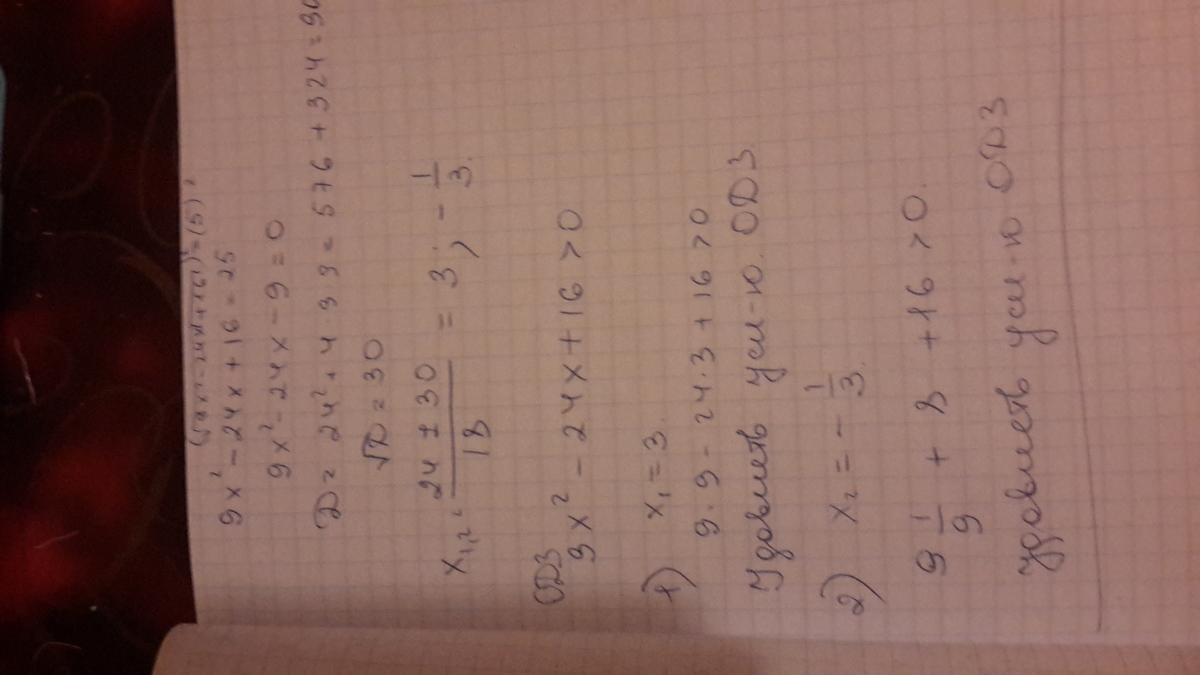 (√9x²-24x+16)²=(5)²
9x²-24x+16=25
9x²-24x-9=0
D=24²+4·9·9=576+324=90
√D=30
x₁,₂=(24±30)/18=3; -1/3.
ОДЗ
9x²-24x+16>0
1) x₁=3.
9·9-24·3+16>0
Удовлеть усл-ю. ОДЗ
2) x₂=-1/3.
9 1/9+8+16>0.
удовлеть усл-ю ОДЗ